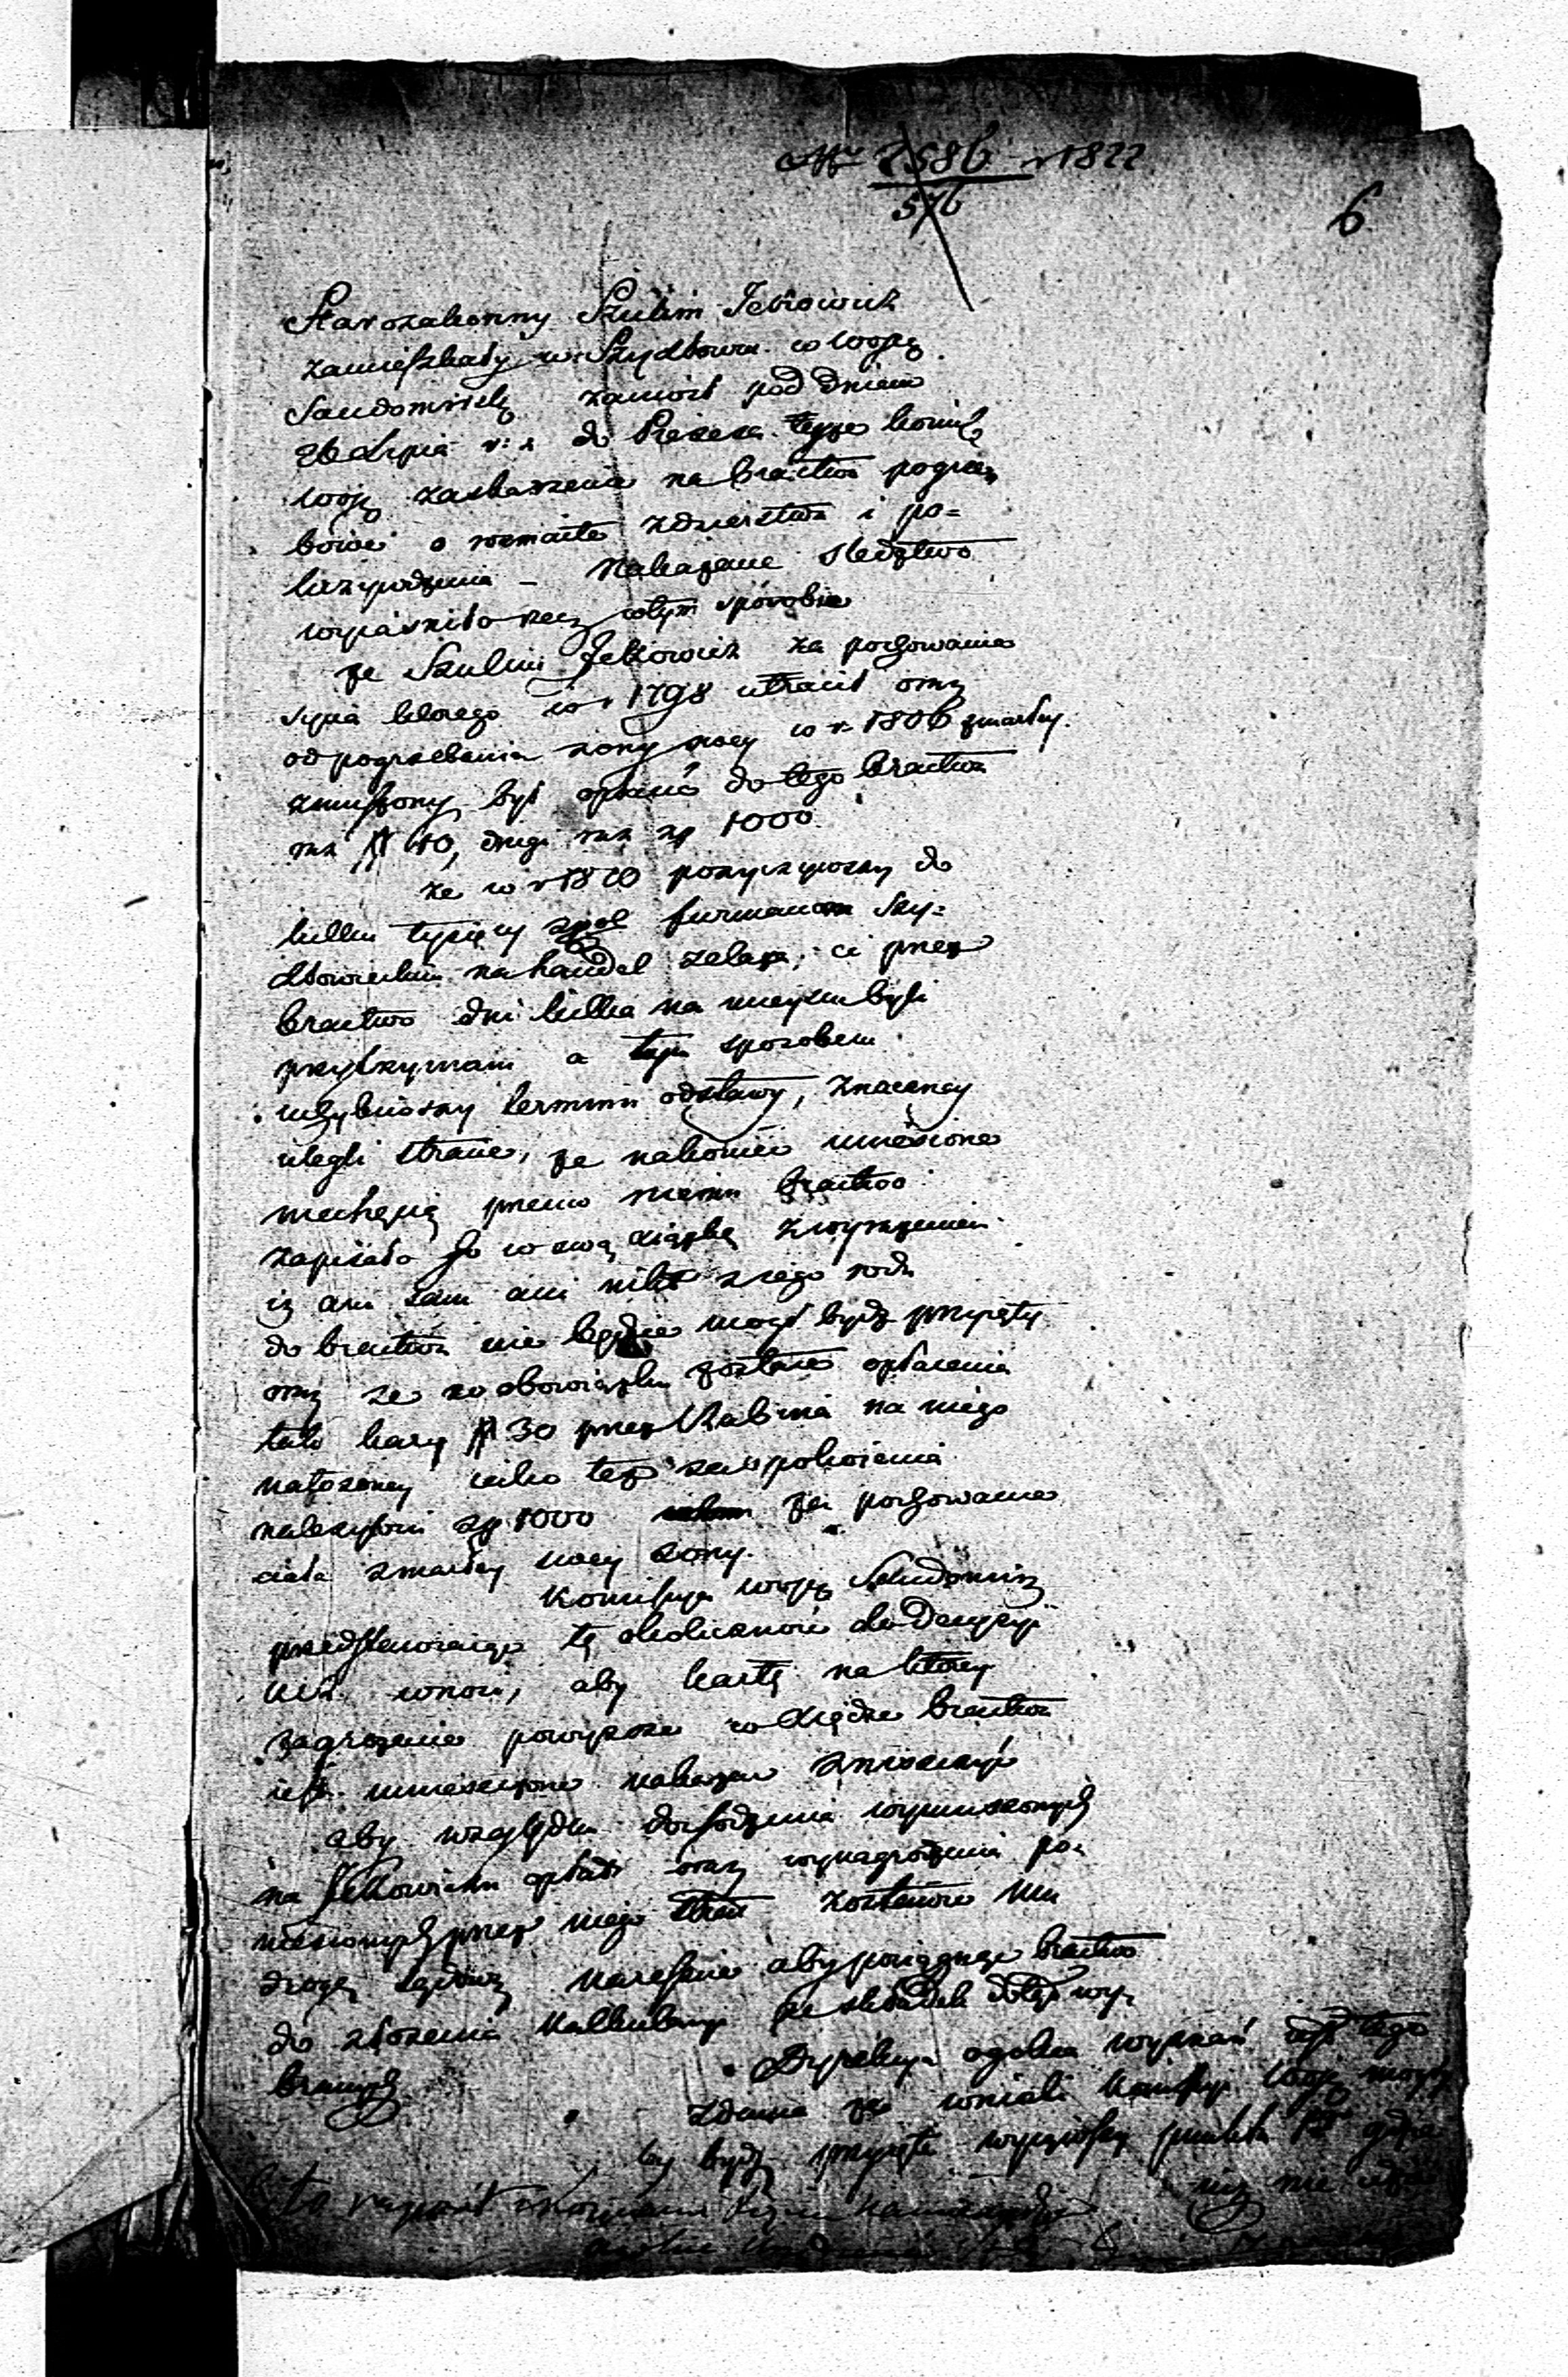 Nr 2586 r 1822
576
6
Starozakonny Szulim Jckowicz
zamieszkały w Szydłowie w Woję
Sandomirsk zaniosł pod dniem
26 Lipca r: z do Prezesa teyże komis
Woję zaskarzenie na bractwo pogrze
bowe o rozmaite zdzierstwa i po=
krzywdzenia – Nakazane sledztwo
wyjaśniło rzecz w tym sposobie
że Szulim Jckowicz za pochowanie
syna ktorego w r 1798 utracił oraz
od pogrzebania żony swey w r 1806 zmarłey
zmuszony był opłacić do tego bractwa
raz # 40, drugi raz zp 1000
że w r 1820 pożyczywszy do
kilku tysięcy furmanom Szy=
dłowieckim na handel żelaza, ci przez
bractwo dni kilka na mieyscu byli
przytrzymani a tym sposobem
uchybiwszy terminu odstawy, znaczney
ulegli stracie, że nakoniec uniesione
niechęcią przeciw niemu bractwo
zapisało go w swą książkę z wyrażeniem
iż ani sam ani nikt z iego rodu
do bractwa nie będzie mogł bydź przyięty
oraz że w obowiązku zostaie opłacenia
tak kary # 30 przez Rabina na niego
nałożoney iako też zaspokoienia
należytości zp 1000 za pochowanie
ciała zmarłey swey żony.
Komissya Woję Sandomirs
przedstawiaiąc tę okoliczność do Decyzyi
wnosi, aby kartę na ktorey
zagrożenie powyższe w księdze bractwa
iest umieszczone nakazać zniszczyć
aby względem dochodzenia wymuszonych
na Jckowiczu opłat oraz wynagrodzenia po=
niesionych przez niego strat zostawić mu
drogę sądową nareszcie aby pociągnąć bractwo
do złożenia kalkulacyi ze składek dotąd wy=
branych
Dyrekcya ogolna wyznań iest tego
zdania że wnioski komissyi Woję mogły
by bydź przyięte wyiąwszy punktu